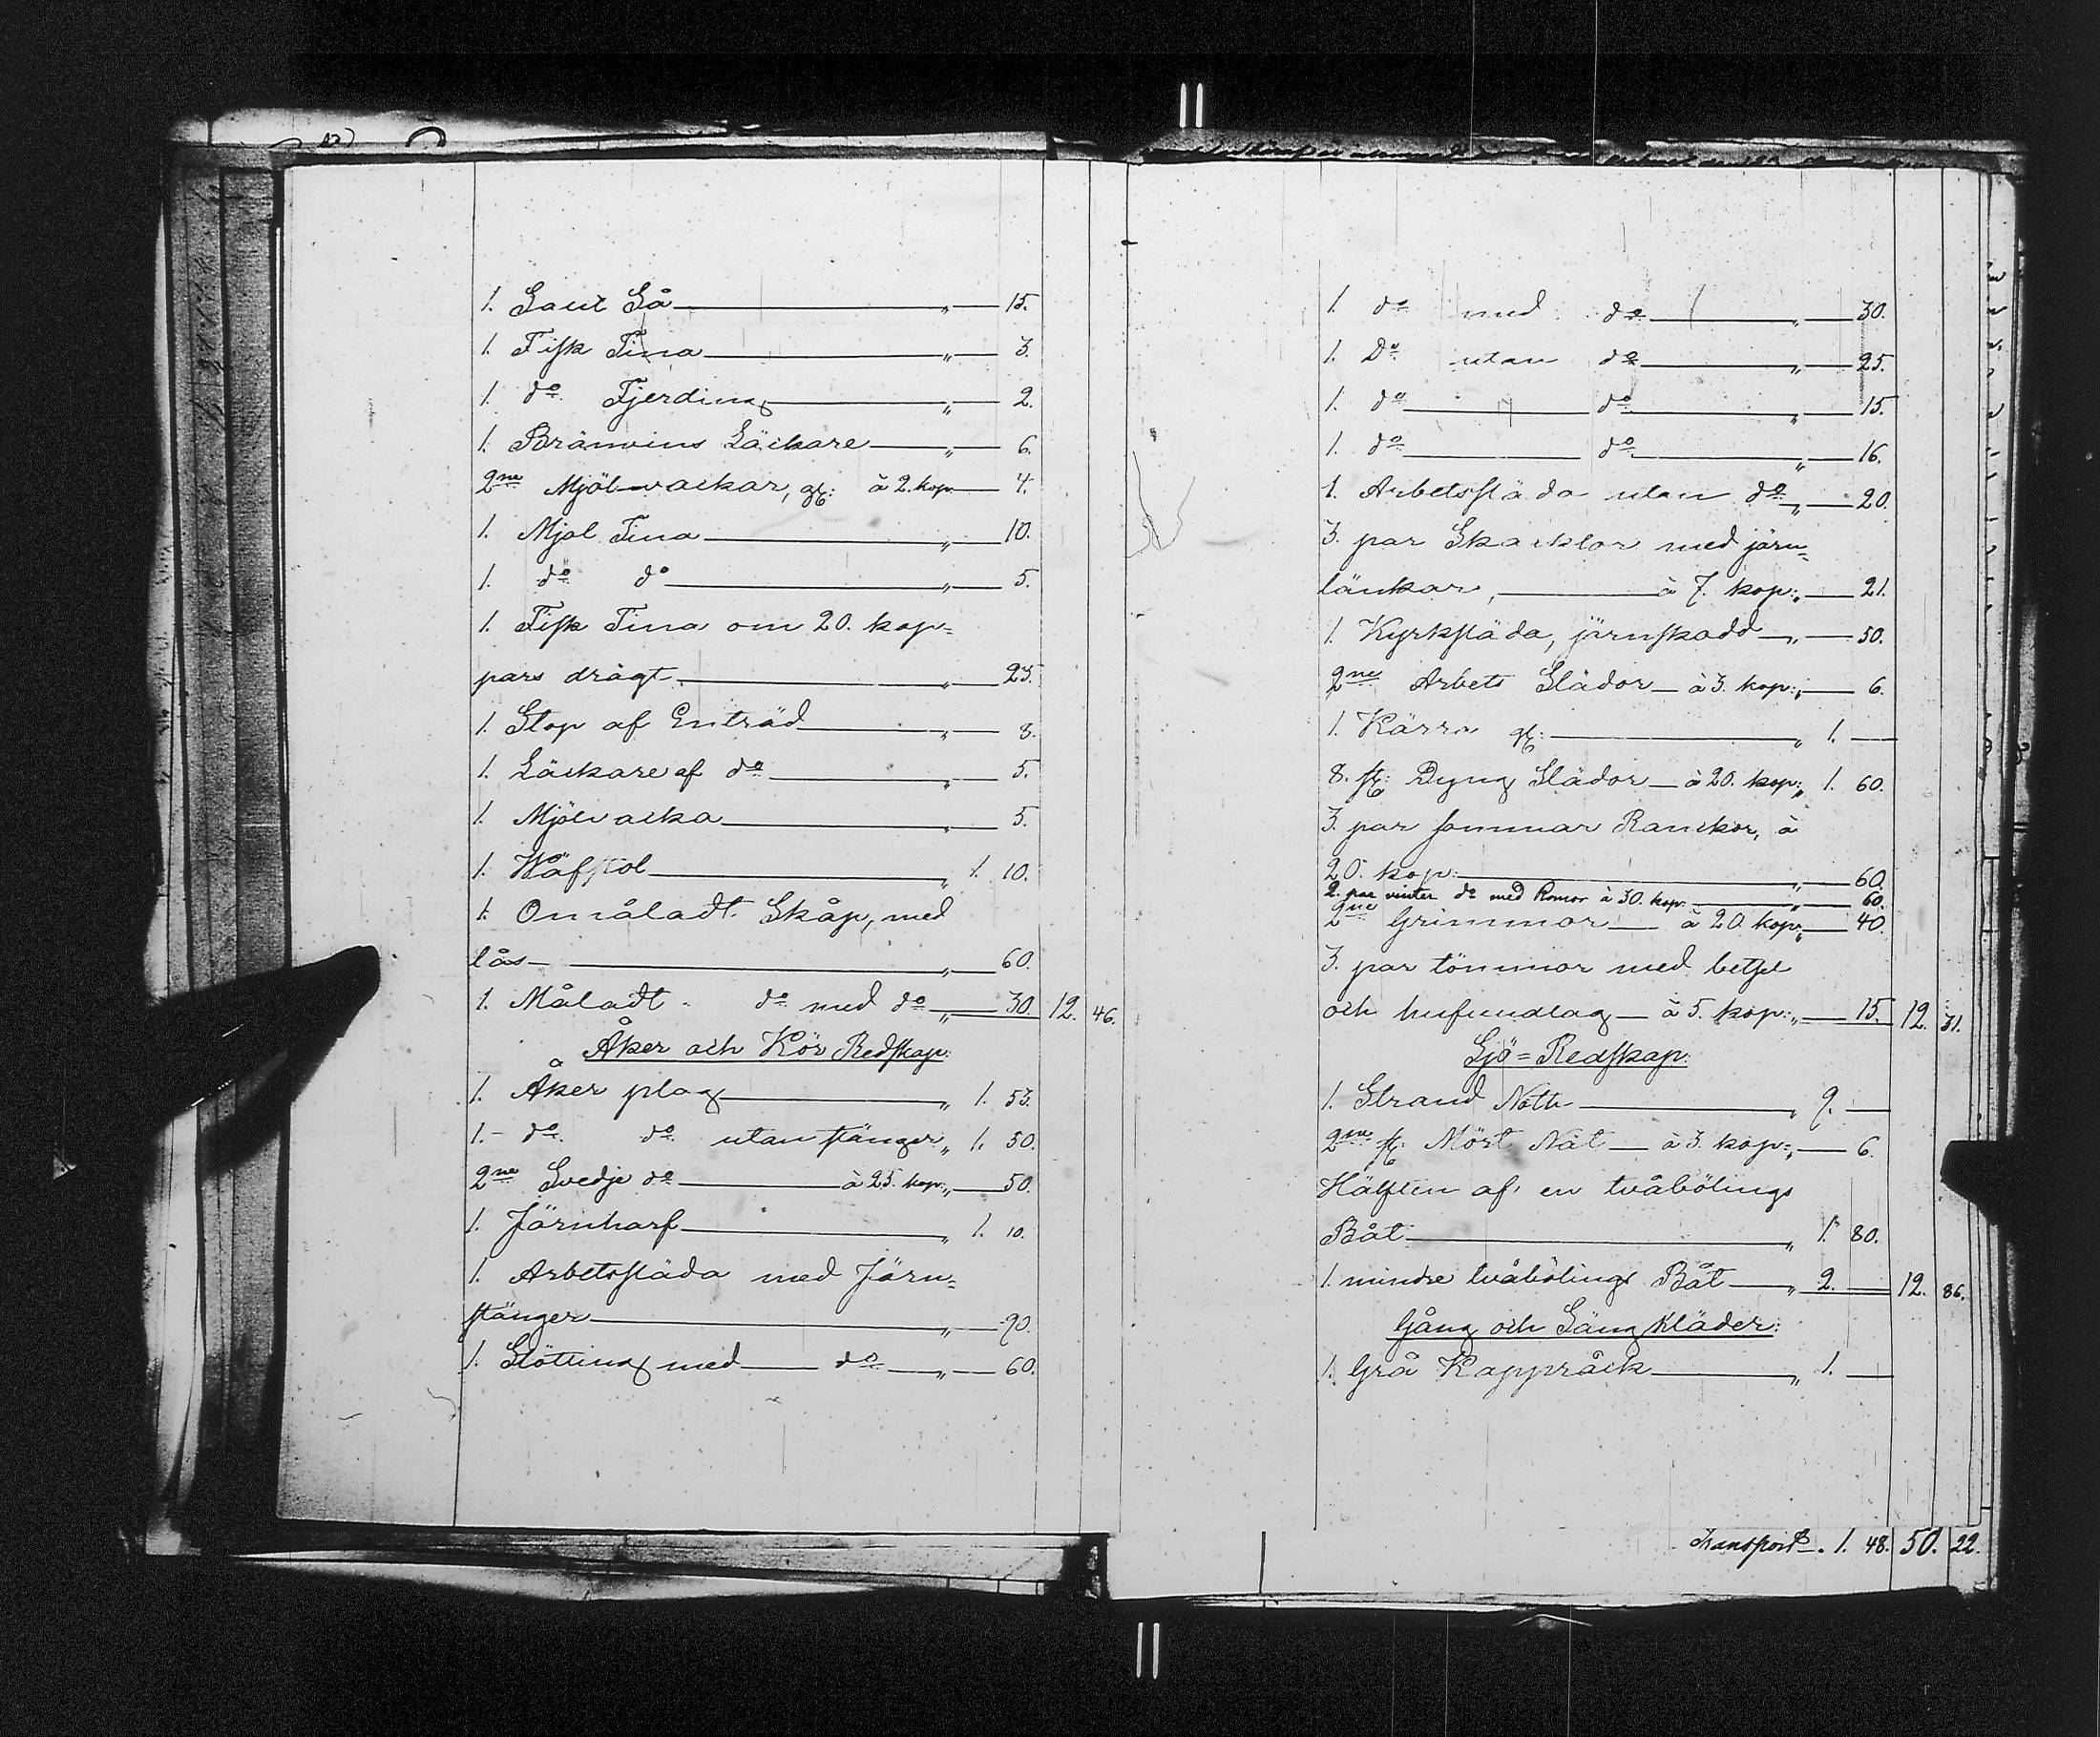 1. Saut Så " 15.
1. Fisk Tina " 3.
1. do Fjerding " 2.
1. Bränvins Läckare " 6.
2ne Mjöl vackar, gl: à 2. kop 4.
1. Mjöl Tina " 10.
1. do do " 5.
1. Fisk Tina om 20. kap=
pars drägt " 25.
1. Stop af Enträd " 8.
1. Läckare af do " 5.
1. Mjölvacka " 5.
1. Wäfstol " 1. 10.
1. Omåladt Skåp, med
lås " 60.
1. Måladt do med do " 30. 12. 46.
Åker och Kör Redskap:
1. Åker plog " 1. 53.
1. do do utan stänger " 1. 50.
2ne Svedje do à 25. kop: " 50.
1. Järnharf " 1. 10.
1. Arbetssläda med Järn=
stänger " 90.
1. Slötting med do " 60.
1. do med do " 30.
1. Do utan do " 25.
1. do do " 15.
1. do do " 16.
1. Arbetssläda utan do " 20.
3. par Skacklor med järn=
länkar, à 7. kop: " 21.
1. Kyrksläda, järnskodd " 50.
2ne Arbets Slädor à 3. kop: " 6.
1. Kärra gl: " 1.
8. st: Dyng Slädor à 20. kop: " 1. 60.
3. par sommar Ranckor, à
20. kop: " 60.
2. par vinter do med Romor à 30. kop " 60.
2ne Grimmor à 20 kop: " 40.
3. par tömmor med betsel
och hufvudlag à 5. kop: " 15. 12. 31.
Sjö=Redskap:
1. Strand Noth " 9.
2ne st: Mört Nät à 3. kop: " 6.
Hälften af en tvåbölings
Båt " 1. 80.
1. mindre tvåbölings Båt " 2. 12. 86.
Gång och Säng Kläder:
1. Grå Kappråck " 1.
Transport . 1. 48. 50. 22.